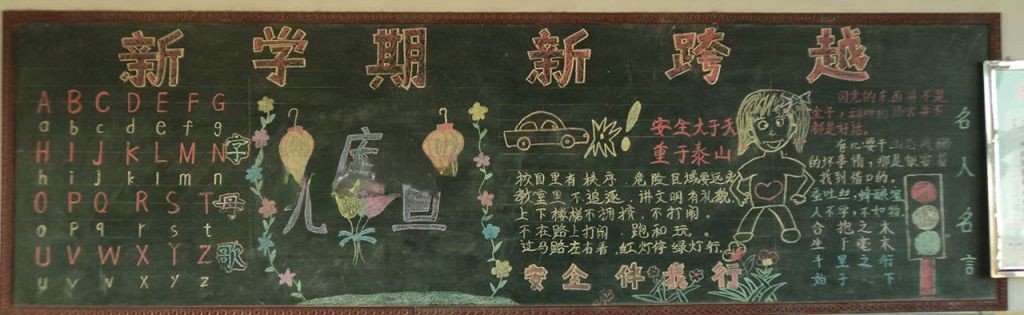 新学期 新跨越
A B C D E F G
a b c d e f g
H I J K L M N
h i j k l m n
O P Q R S T
o p q r s t
U V W X Y Z
u v w x y z
字母歌
安全大于天
重于泰山
校园里有秩序，危险区域要远离
教室里不追逐，讲文明有礼貌
上下楼梯不拥挤，不打闹。
不在路上打闹、跑和玩。
过马路左右看，红灯停绿灯行
安全伴我行
闪光的东西并不是
金子，动听的
都是好话。
的坏事情，都是
找到借口的。
蚕吐丝，蜂酿蜜
人不学，不如物
合抱之木
生于毫末
千里之行
始于
下
名人名言